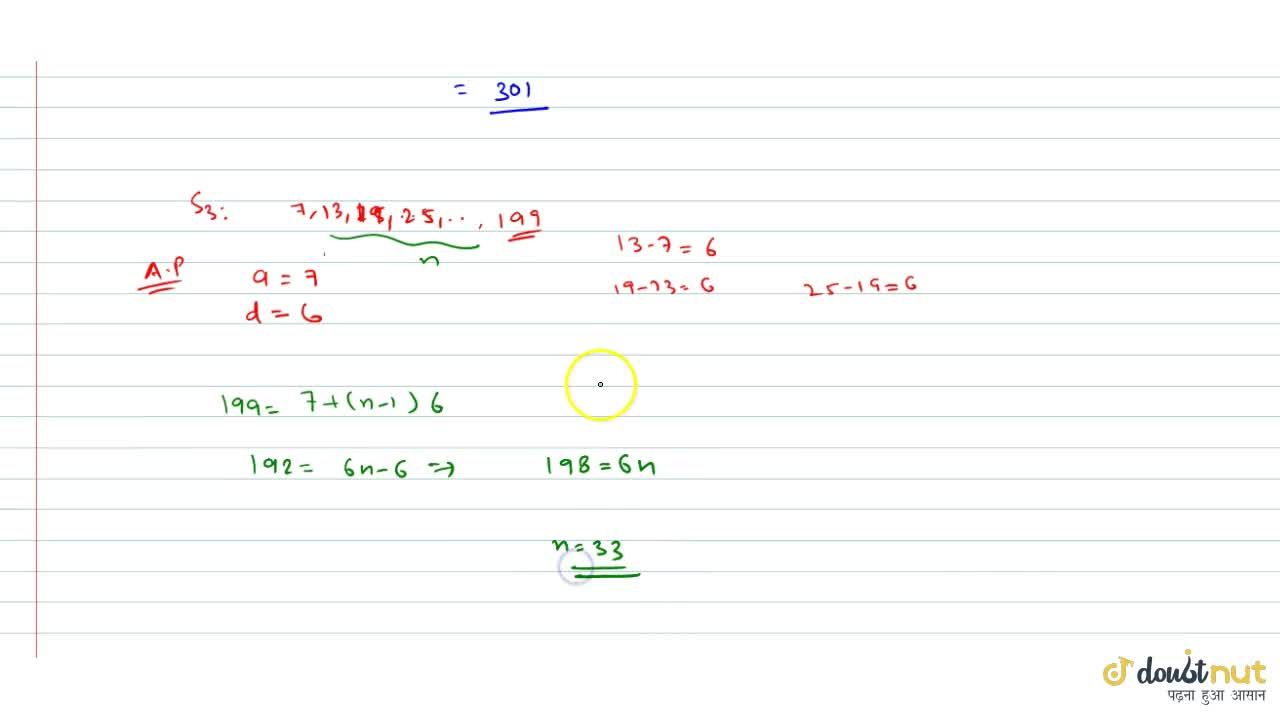 = 301
S3: 7, 13, 19, 25, .., 199
n
13-7 = 6
A.P a = 7
19-13= 6 25-19=6
d = 6
199= 7+(n-1) 6
192= 6n-6 ⇒ 198=6n
n= 33
doubtnut
पढ़ना हुआ आसान